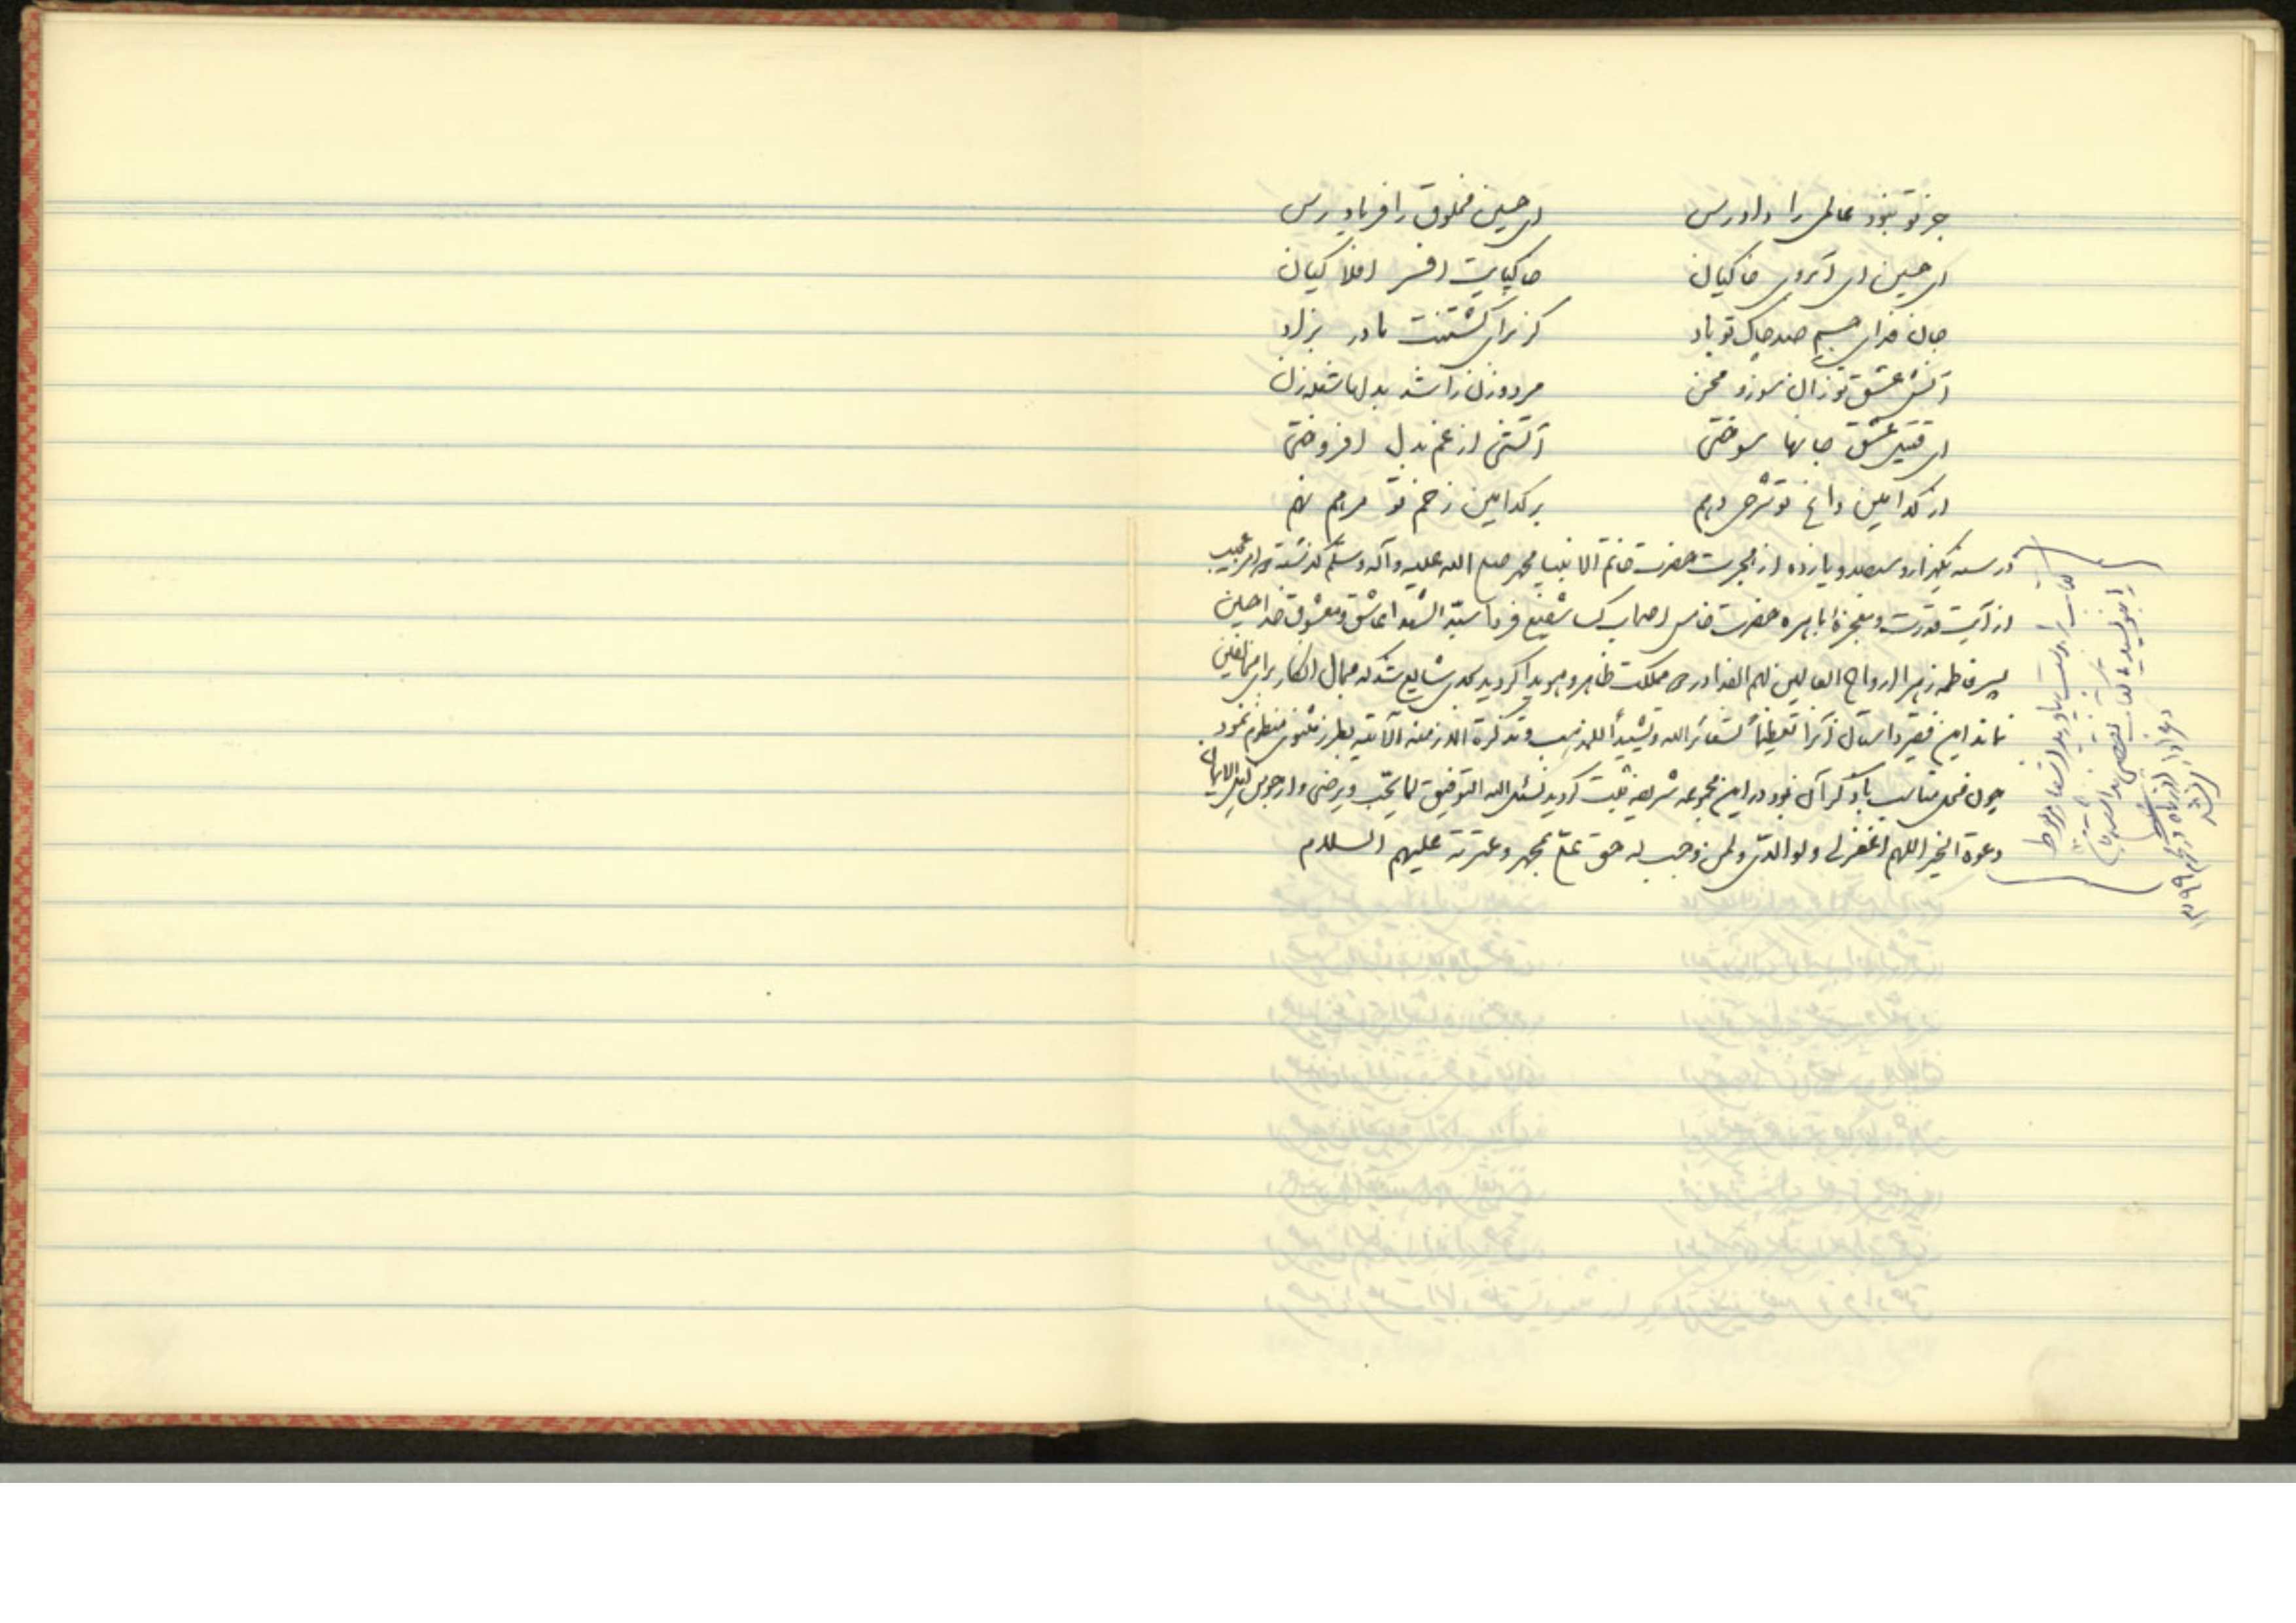 جز تو نبود عالمی را دادرس ای حسین مخلوق را فریادرس
ای حسین ای آبروی خاکیان خاکپایت افسر افلاکیان
جان فدای جسم صد چاک تو باد کز برای کشتنت مادر بزاد
آتش عشق تو زان سوز و محن مرد و زن را شد بدلها شعله زن
ای قتیل عشق جانها سوختی آتشی از غم بدل افروختی
از کدامین داغ تو شرحی دهم بر کدامین زخم تو مرهم نهم
در سنه یکهزار و سیصد و یازده از هجرت حضرت خاتم الانبیا محمد صلی الله علیه و آله و سلم گذشته امر عجیب
از آیت قدرت و معجزه باهره حضرت خامس اصحاب کسا شفیع فردا سید الشهدا عاشق و معشوق خدا حسین
پسر فاطمه زهرا ارواح العالمین لهم الفدا در مملکت ظاهر و هویدا گردید بحدی شایع شد که مجال انکار برای مخالفین
نماند این فقیر داستان آنرا تعظیماً لشعائر الله و تشییداً للمذهب و تذکرة الازمنه الآتیه بطرز مثنوی منظوم نمود
چون محل مناسب با ذکر آن نبود در این مجموعه شریفه ثبت گردید نسئل الله التوفیق لما یحب و یرضی و ارجو من اهل الایمان
دعوة الخیر اللهم اغفر لی و لوالدی و لمن وجب له حق علی بمحمد و عترته علیهم السلام
کتاب اشعار مربوط
را بنویسید کتاب